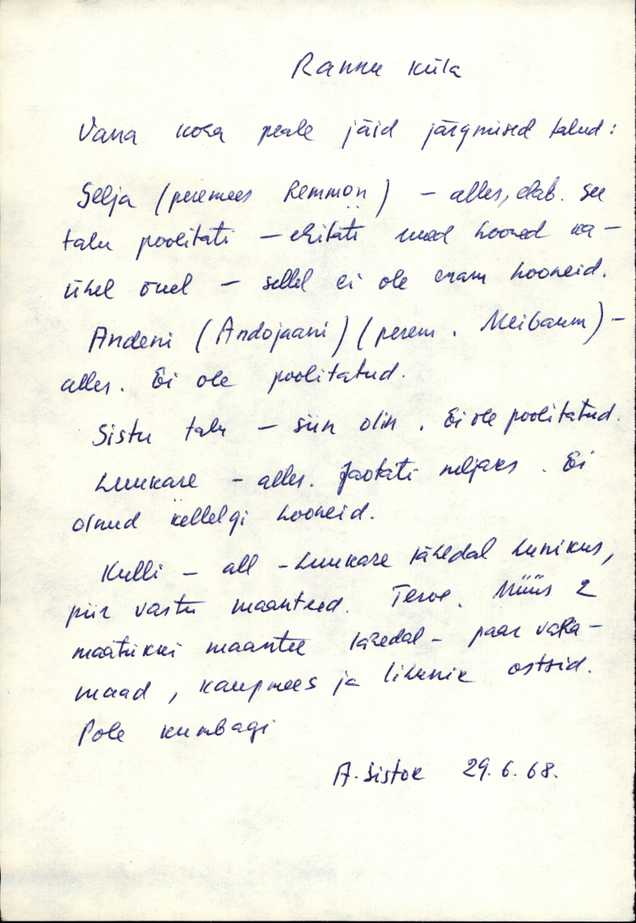 Rannu küla
Vana koha peale jäid järgmised talud:
Selja (peremees Remmön) – alles, elab. See
talu poolitati – ehitati uued hooned ka-
ühel õuel – sellel ei ole enam hooneid.
Andeni (Andojaani) (perem. Meibaum) –
alles. Ei ole poolitatud.
Sistu talu – siin olin. Ei ole poolitatud.
Luukase – alles. Jaotati neljaks. Ei
olnud kellelgi hooneid.
Kulli – all – Luukase lähedal
piir vastu maanteed. Terve. Müüs 2
maatükki maantee lähedal – paar vaka-
maad, kaupmees ja lihunik ostsid.
Pole kumbagi
A. Sistok 29.6.68.